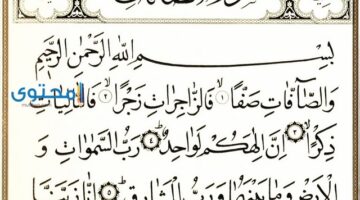 بِسْمِ اللّٰهِ الرَّحْمٰنِ الرَّحِيمِ
وَالصَّٓافَّاتِ صَفًّاۙ ﴿١﴾ فَالزَّاجِرَاتِ زَجْرًاۙ ﴿٢﴾ فَالتَّالِيَاتِ
ذِكْرًاۙ ﴿٣﴾ اِنَّ اِلٰهَكُمْ لَوَاحِدٌۜ ﴿٤﴾ رَبُّ السَّمٰوَاتِ وَ
الْاَرْضِ وَمَا بَيْنَهُمَا وَرَبُّ الْمَشَارِقِۜ ﴿٥﴾ اِنَّا زَيَّنَّا
المحتوى